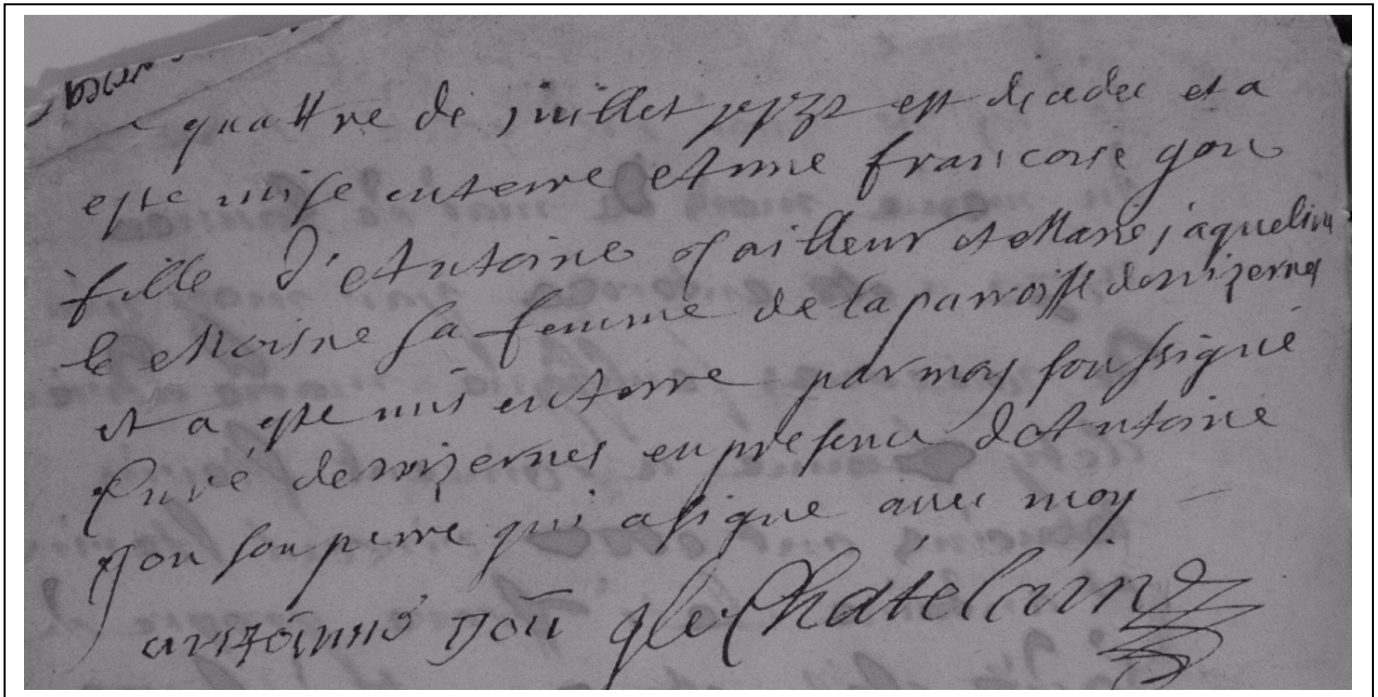 quattre de juillet 1732 est decedee et a
este mise en terre Anne francoise gou
fille d'Antoine tailleur et Marie jaqueline
le Moisne sa femme de la parroisse de wizernes
et a este mis en terre par moy soussigné
Curé de wizernes en presence d'Antoine
gou son perre qui a signe avec moy
antoinne gou g le Chatelain